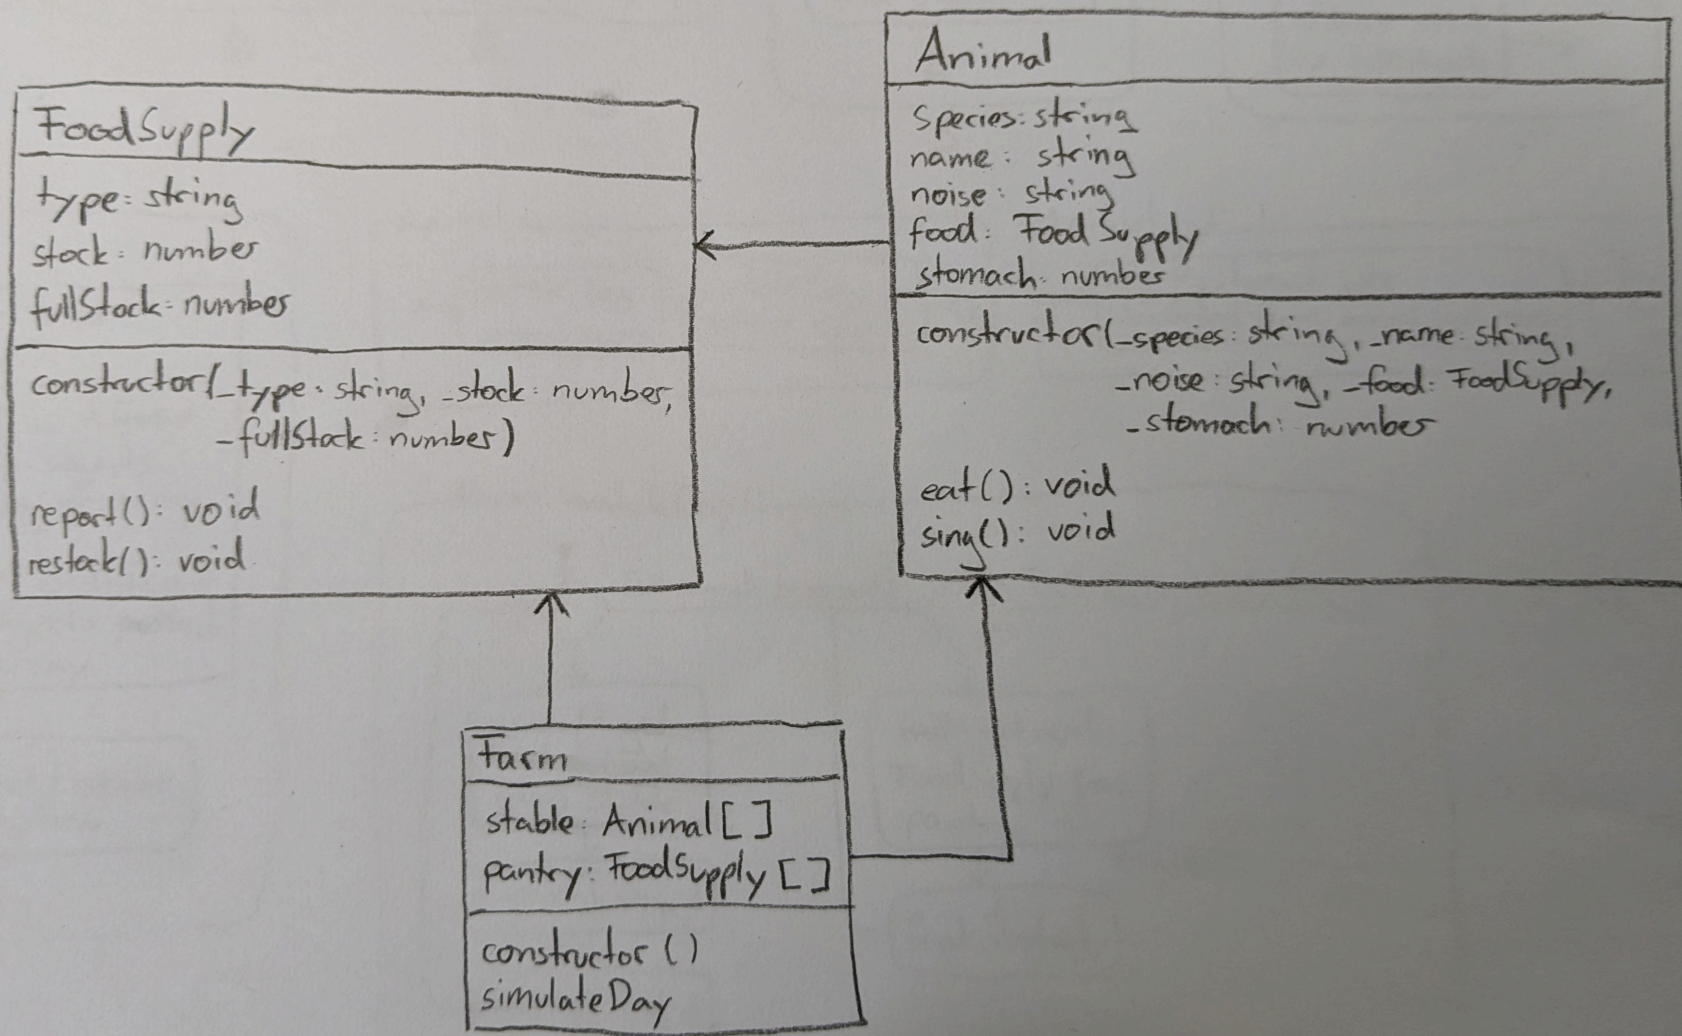 FoodSupply
type: string
stock: number
fullStock: number
constructor(_type: string, _stock: number,
_fullStock: number)
report(): void
restock(): void
Animal
Species: string
name: string
noise: string
food: FoodSupply
stomach: number
constructor(_species: string, _name: string,
_noise: string, _food: FoodSupply,
_stomach: number
eat(): void
sing(): void
Farm
stable: Animal[]
pantry: FoodSupply[]
constructor()
simulateDay